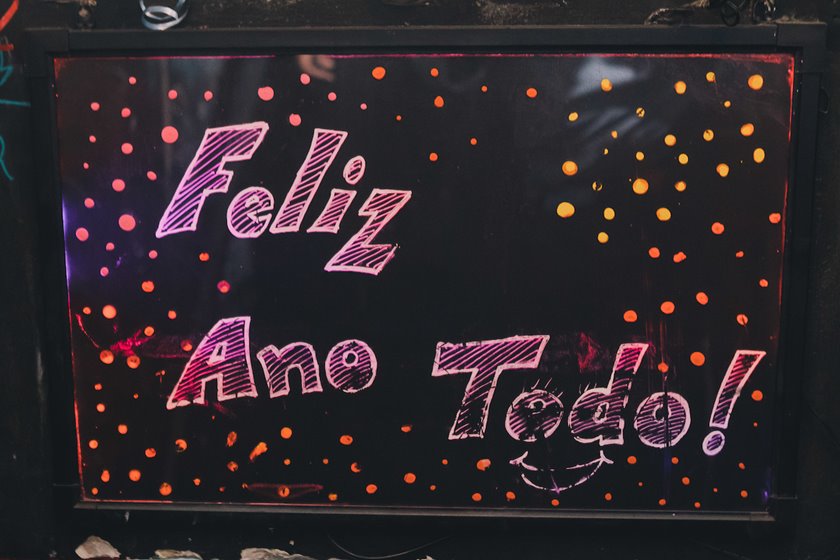 Feliz
Ano
Todo!